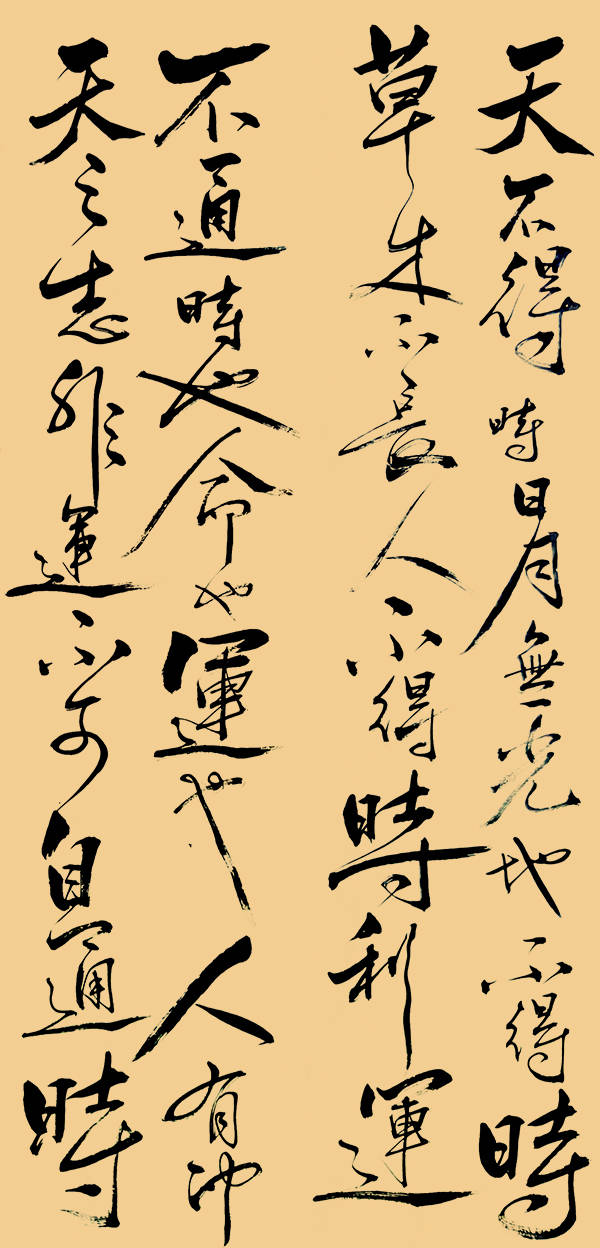 天不得時日月無光地不得時
草木不長人不得時利運
不通時也命也運也人有沖
天之志非運不可自通時